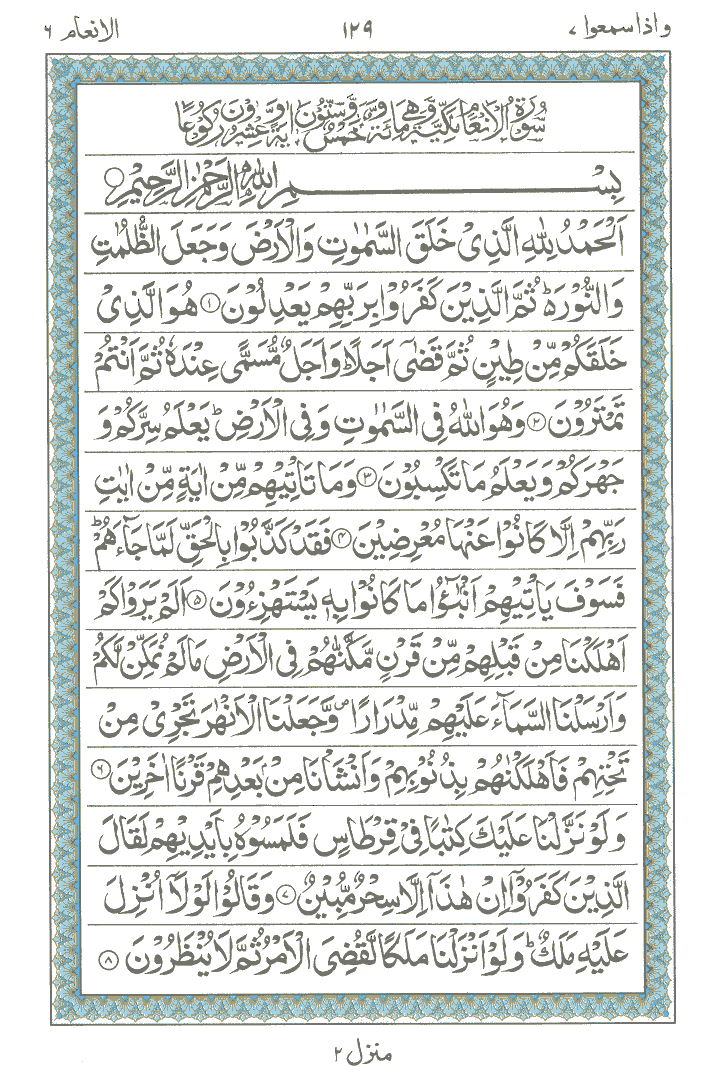 واذاسمعوا ٧ ١٢٩ الانعام ٦
سُوْرَةُ الْاَنْعَامِ مَكِّيَّةٌ وَّهِیَ مِائَةٌ وَّخَمْسٌ وَّسِتُّوْنَ اٰيَةً وَّعِشْرُوْنَ رُكُوْعًا
بِسْمِ اللّٰهِ الرَّحْمٰنِ الرَّحِيْمِ
اَلْحَمْدُ لِلّٰهِ الَّذِیْ خَلَقَ السَّمٰوٰتِ وَالْاَرْضَ وَجَعَلَ الظُّلُمٰتِ
وَالنُّوْرَ ۬ؕ ثُمَّ الَّذِيْنَ كَفَرُوْا بِرَبِّهِمْ يَعْدِلُوْنَ ۝۱ هُوَ الَّذِیْ
خَلَقَكُمْ مِّنْ طِيْنٍ ثُمَّ قَضٰۤی اَجَلًا ؕ وَاَجَلٌ مُّسَمًّی عِنْدَهٗ ثُمَّ اَنْتُمْ
تَمْتَرُوْنَ ۝۲ وَهُوَ اللّٰهُ فِی السَّمٰوٰتِ وَفِی الْاَرْضِ ؕ يَعْلَمُ سِرَّكُمْ وَ
جَهْرَكُمْ وَيَعْلَمُ مَا تَكْسِبُوْنَ ۝۳ وَمَا تَاْتِيْهِمْ مِّنْ اٰيَةٍ مِّنْ اٰيٰتِ
رَبِّهِمْ اِلَّا كَانُوْا عَنْهَا مُعْرِضِيْنَ ۝۴ فَقَدْ كَذَّبُوْا بِالْحَقِّ لَمَّا جَآءَهُمْ ؕ
فَسَوْفَ يَاْتِيْهِمْ اَنْۢبٰٓؤُا مَا كَانُوْا بِهٖ يَسْتَهْزِءُوْنَ ۝۵ اَلَمْ يَرَوْا كَمْ
اَهْلَكْنَا مِنْ قَبْلِهِمْ مِّنْ قَرْنٍ مَّكَّنّٰهُمْ فِی الْاَرْضِ مَا لَمْ نُمَكِّنْ لَّكُمْ
وَاَرْسَلْنَا السَّمَآءَ عَلَيْهِمْ مِّدْرَارًا ۪ وَّجَعَلْنَا الْاَنْهٰرَ تَجْرِیْ مِنْ
تَحْتِهِمْ فَاَهْلَكْنٰهُمْ بِذُنُوْبِهِمْ وَاَنْشَاْنَا مِنْۢ بَعْدِهِمْ قَرْنًا اٰخَرِيْنَ ۝۶
وَلَوْ نَزَّلْنَا عَلَيْكَ كِتٰبًا فِیْ قِرْطَاسٍ فَلَمَسُوْهُ بِاَيْدِيْهِمْ لَقَالَ
الَّذِيْنَ كَفَرُوْۤا اِنْ هٰذَاۤ اِلَّا سِحْرٌ مُّبِيْنٌ ۝۷ وَقَالُوْا لَوْلَاۤ اُنْزِلَ
عَلَيْهِ مَلَكٌ ؕ وَلَوْ اَنْزَلْنَا مَلَكًا لَّقُضِیَ الْاَمْرُ ثُمَّ لَا يُنْظَرُوْنَ ۝۸
منزل ٢